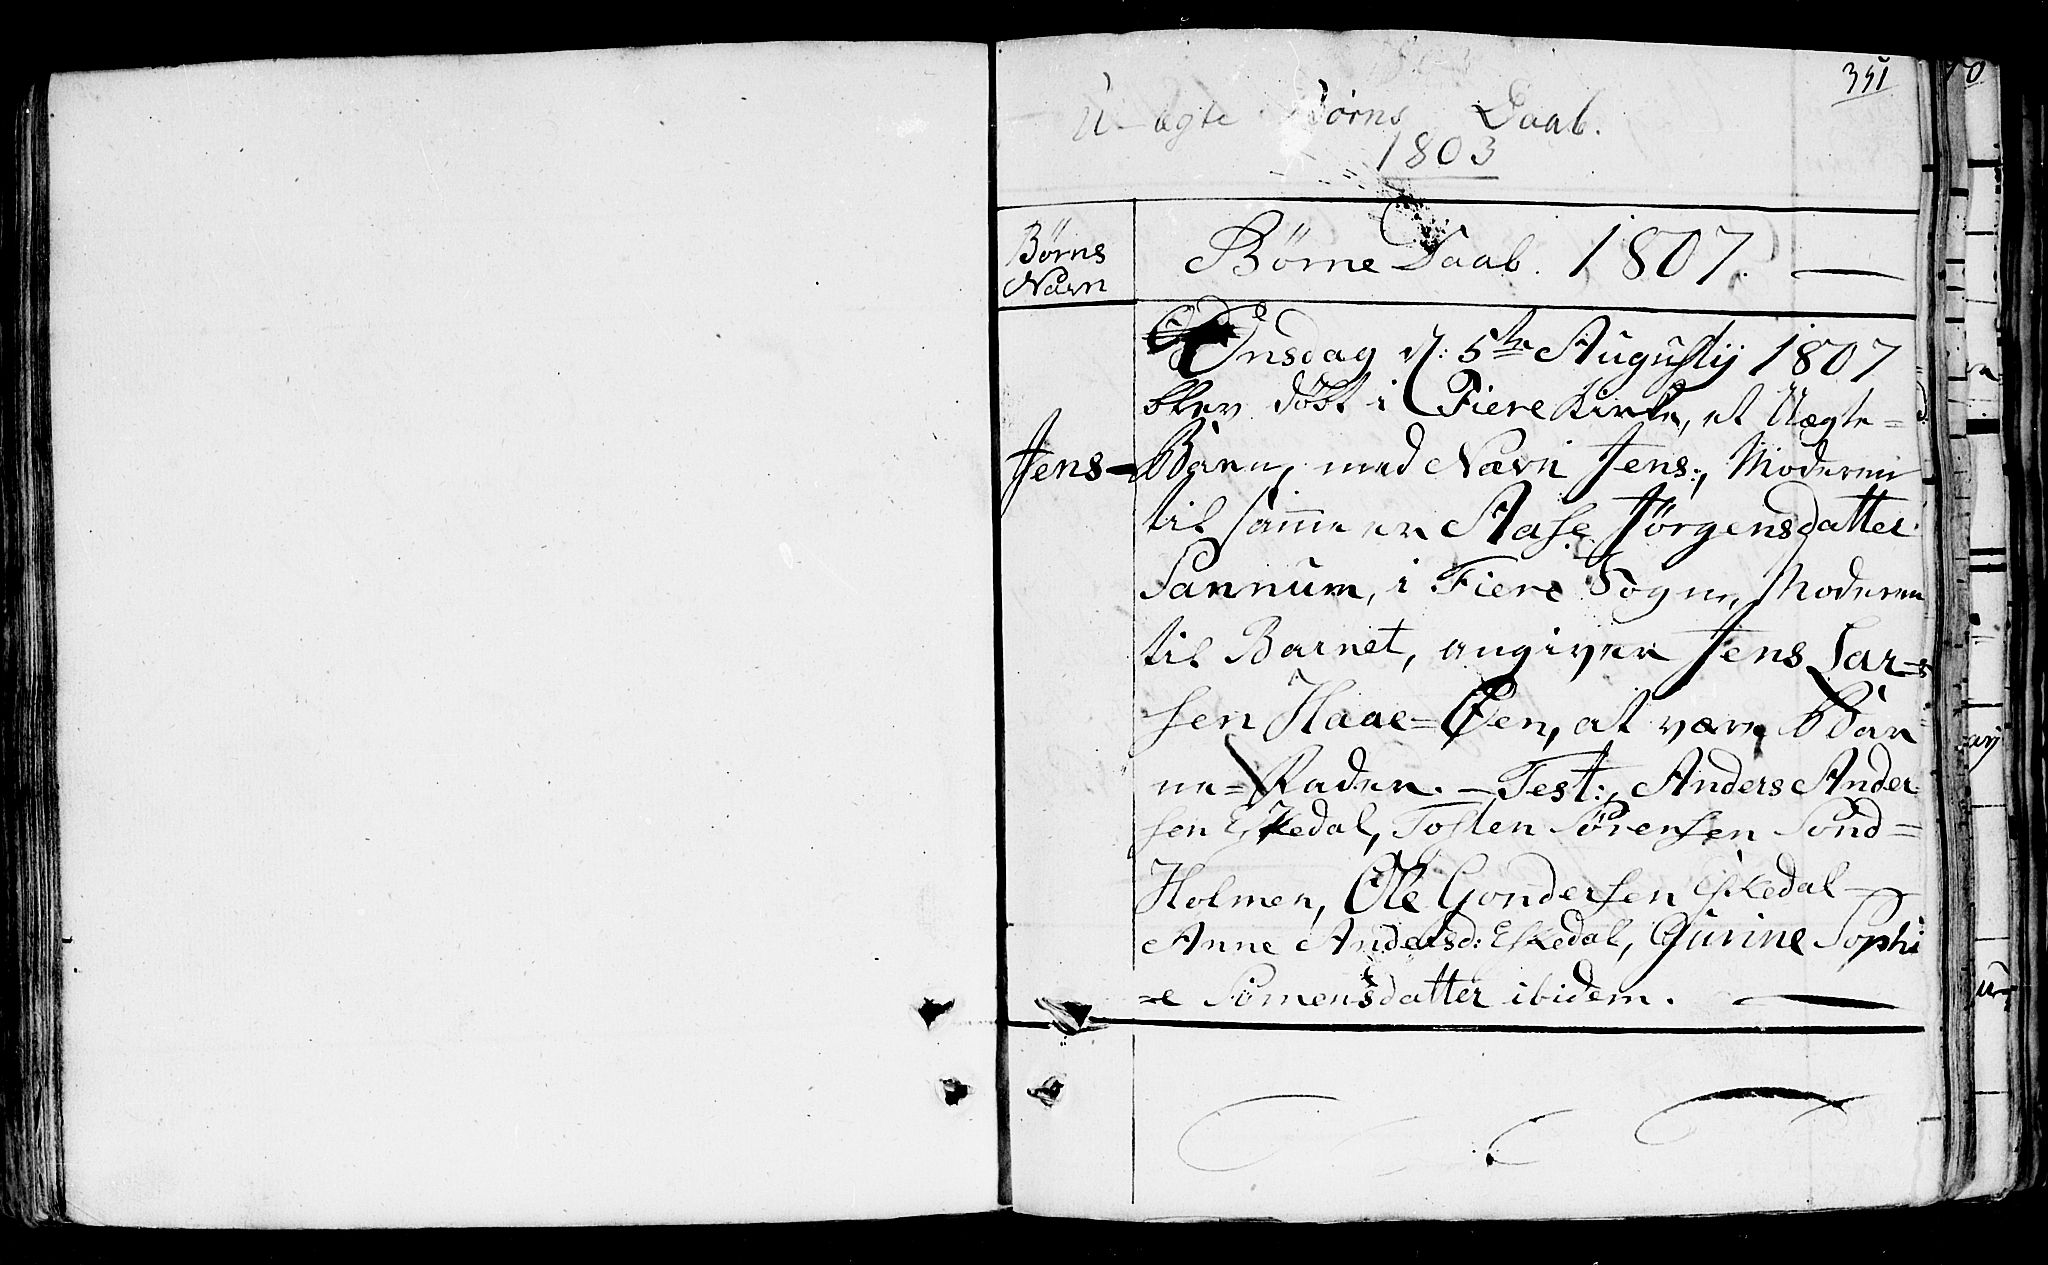 351
U-ægte Børns Daab.
1803
Børns
Navn
Børne Daab. 1807.
Onsdag d: 5te Augustij 1807
blev döbt i Fiere Kirke, et Uægte=
Jens- Barn, med Navn Jens:, Moderen
til samme er Aase Jörgensdatter
Sannum, i Fiere Sogn, Moderen
til Barnet, angiver Jens Lar=
sen Haae=Øen, at være Bar
ne=Fader. - Test:, Anders Ander
sen Eskedal, Tosten Sörensen Sond=
Holmen, Ole Gondersen Eskedal
Anne Andersd: Eskedal, Gurine Sophi
=e Simensdatter ibidem.